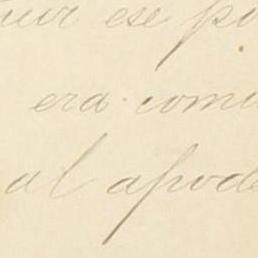 ese
era comu
al apode